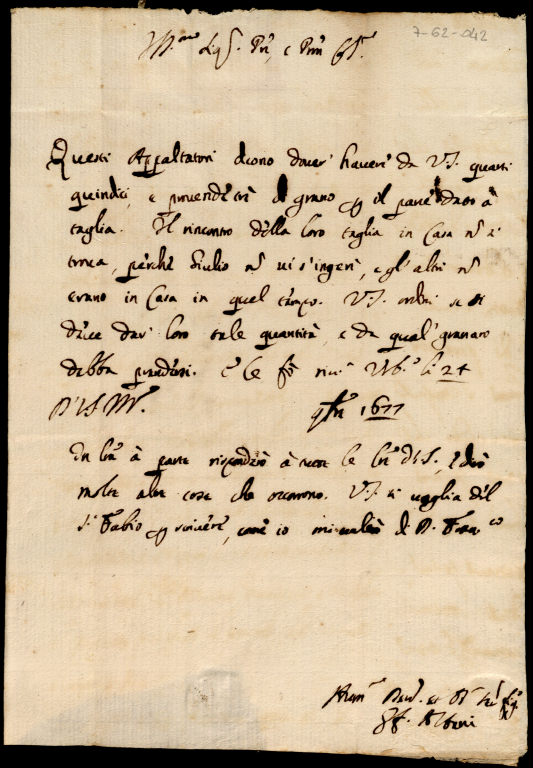 7-62-042
Ill.mo Sig.r
Questi Appaltatori dicono dover havere da V.S. quarti
quindici, e provende tre di grano p il pane dato à
taglia. Il rincontro della loro taglia in Casa nō si
trova, perche Giulio nō vi s'ingerì, e gl'altri nō
erano in Casa in quel tempo. V.S. ordini se si
deve dar loro tale quantità, e da qual granaro
debba prendersi. E le fo riv.a Urb.o li 24
D V.S. Ill.
1677
In lr̄a à parte risponderò à tutte le lr̄e di V.S., e dirò
molte altre cose che occorrono. V.S. si voglia del
S.r Fabio p scrivere, come io mi vaglio di D. Fran.co
Albani